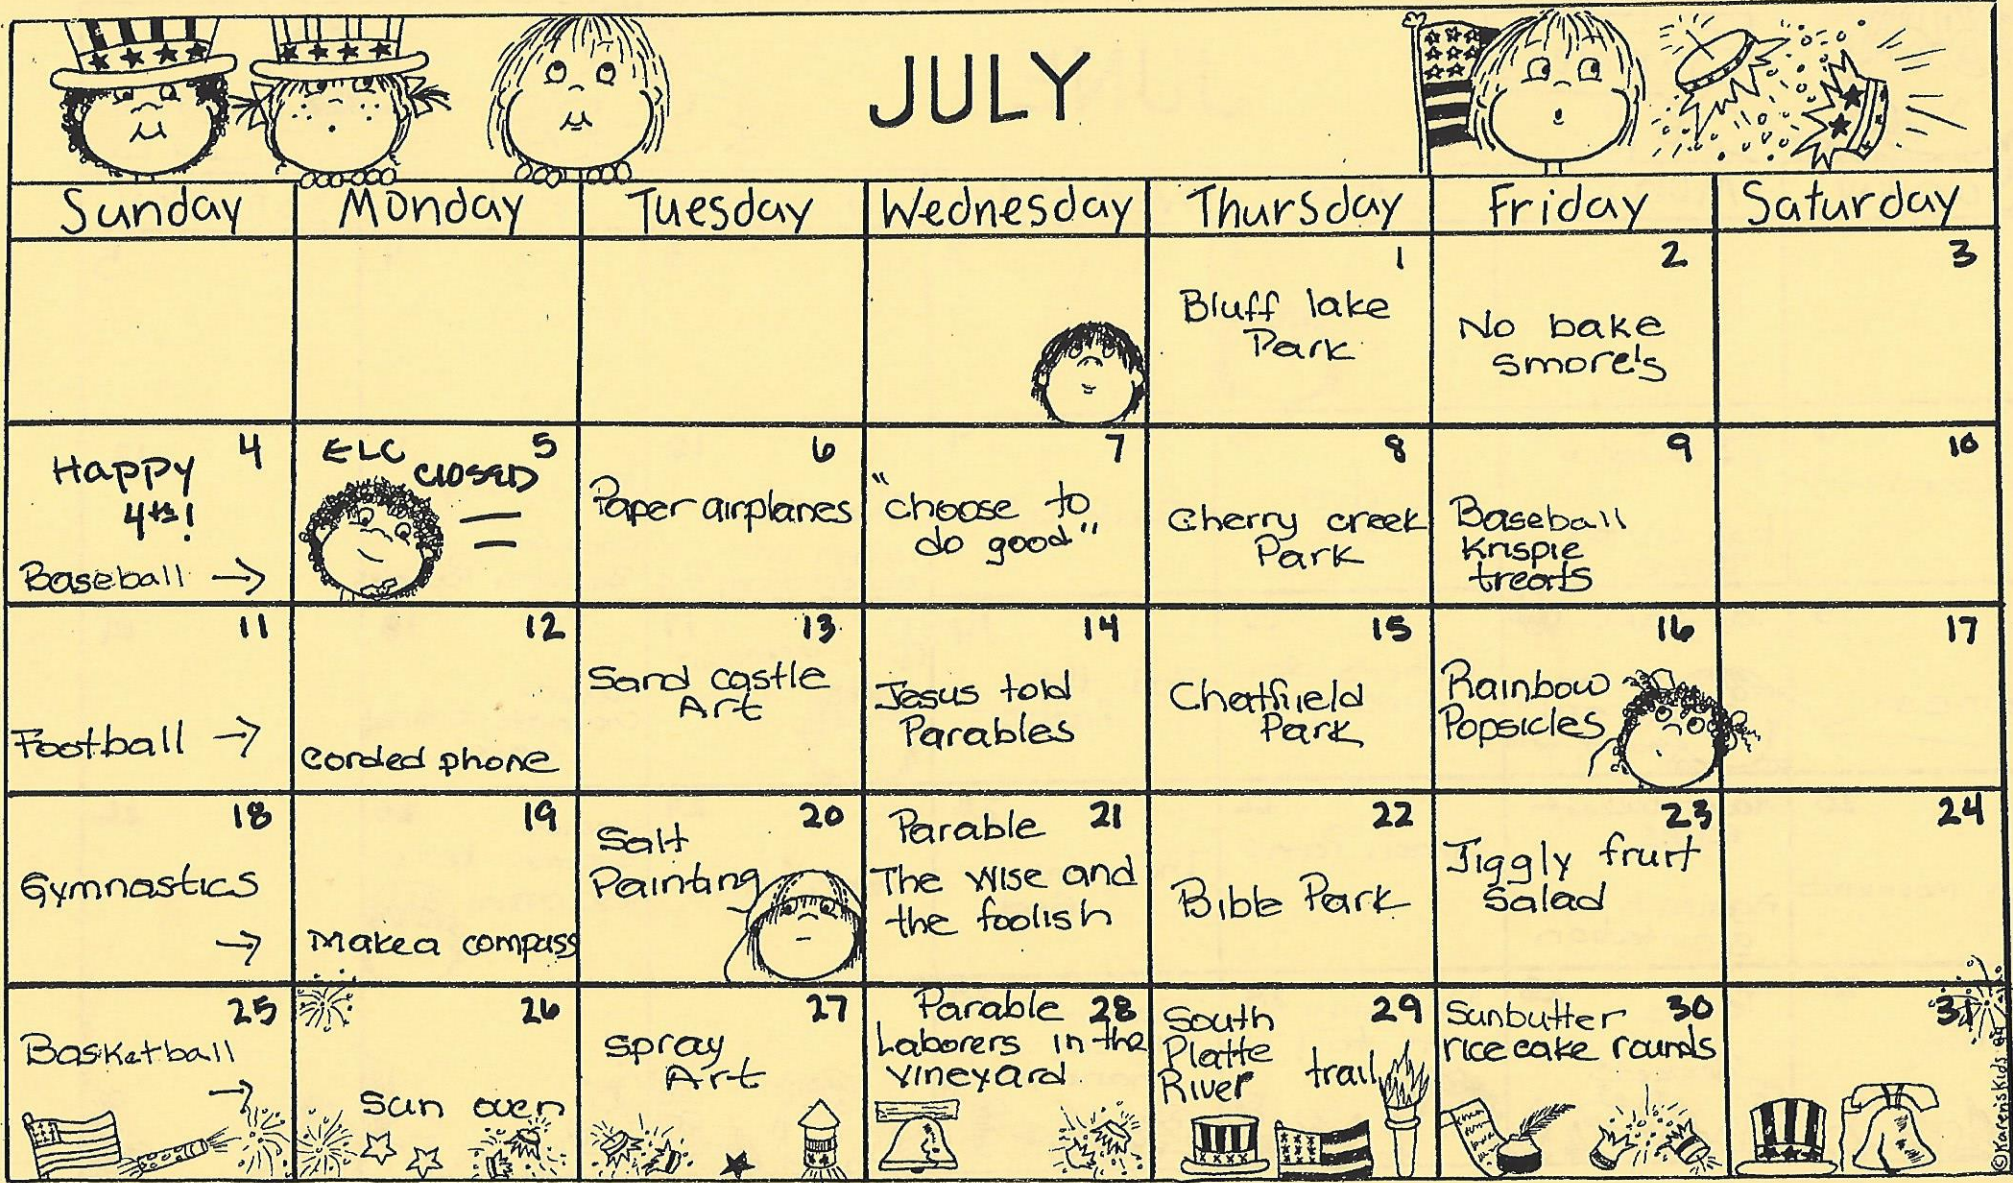 JULY
Sunday Monday Tuesday Wednesday Thursday Friday Saturday
1
Bluff lake
Park
2
No bake
smore's
3
4
Happy
4th!
Baseball →
5
ELC
CLOSED
6
Paper airplanes
7
"choose to
do good"
8
Cherry creek
Park
9
Baseball
Krispie
treats
10
11
Football →
12
Corded phone
13
Sand castle
Art
14
Jesus told
Parables
15
Chatfield
Park
16
Rainbow
Popsicles
17
18
Gymnastics
→
19
Make a compass
20
Salt
Painting
21
Parable
The wise and
the foolish
22
Bible Park
23
Jiggly fruit
Salad
24
25
Basketball
→
26
Sun oven
27
Spray
Art
28
Parable
Laborers in the
vineyard
29
South
Platte
River trail
30
Sunbutter
rice cake rounds
31
©Karenskids